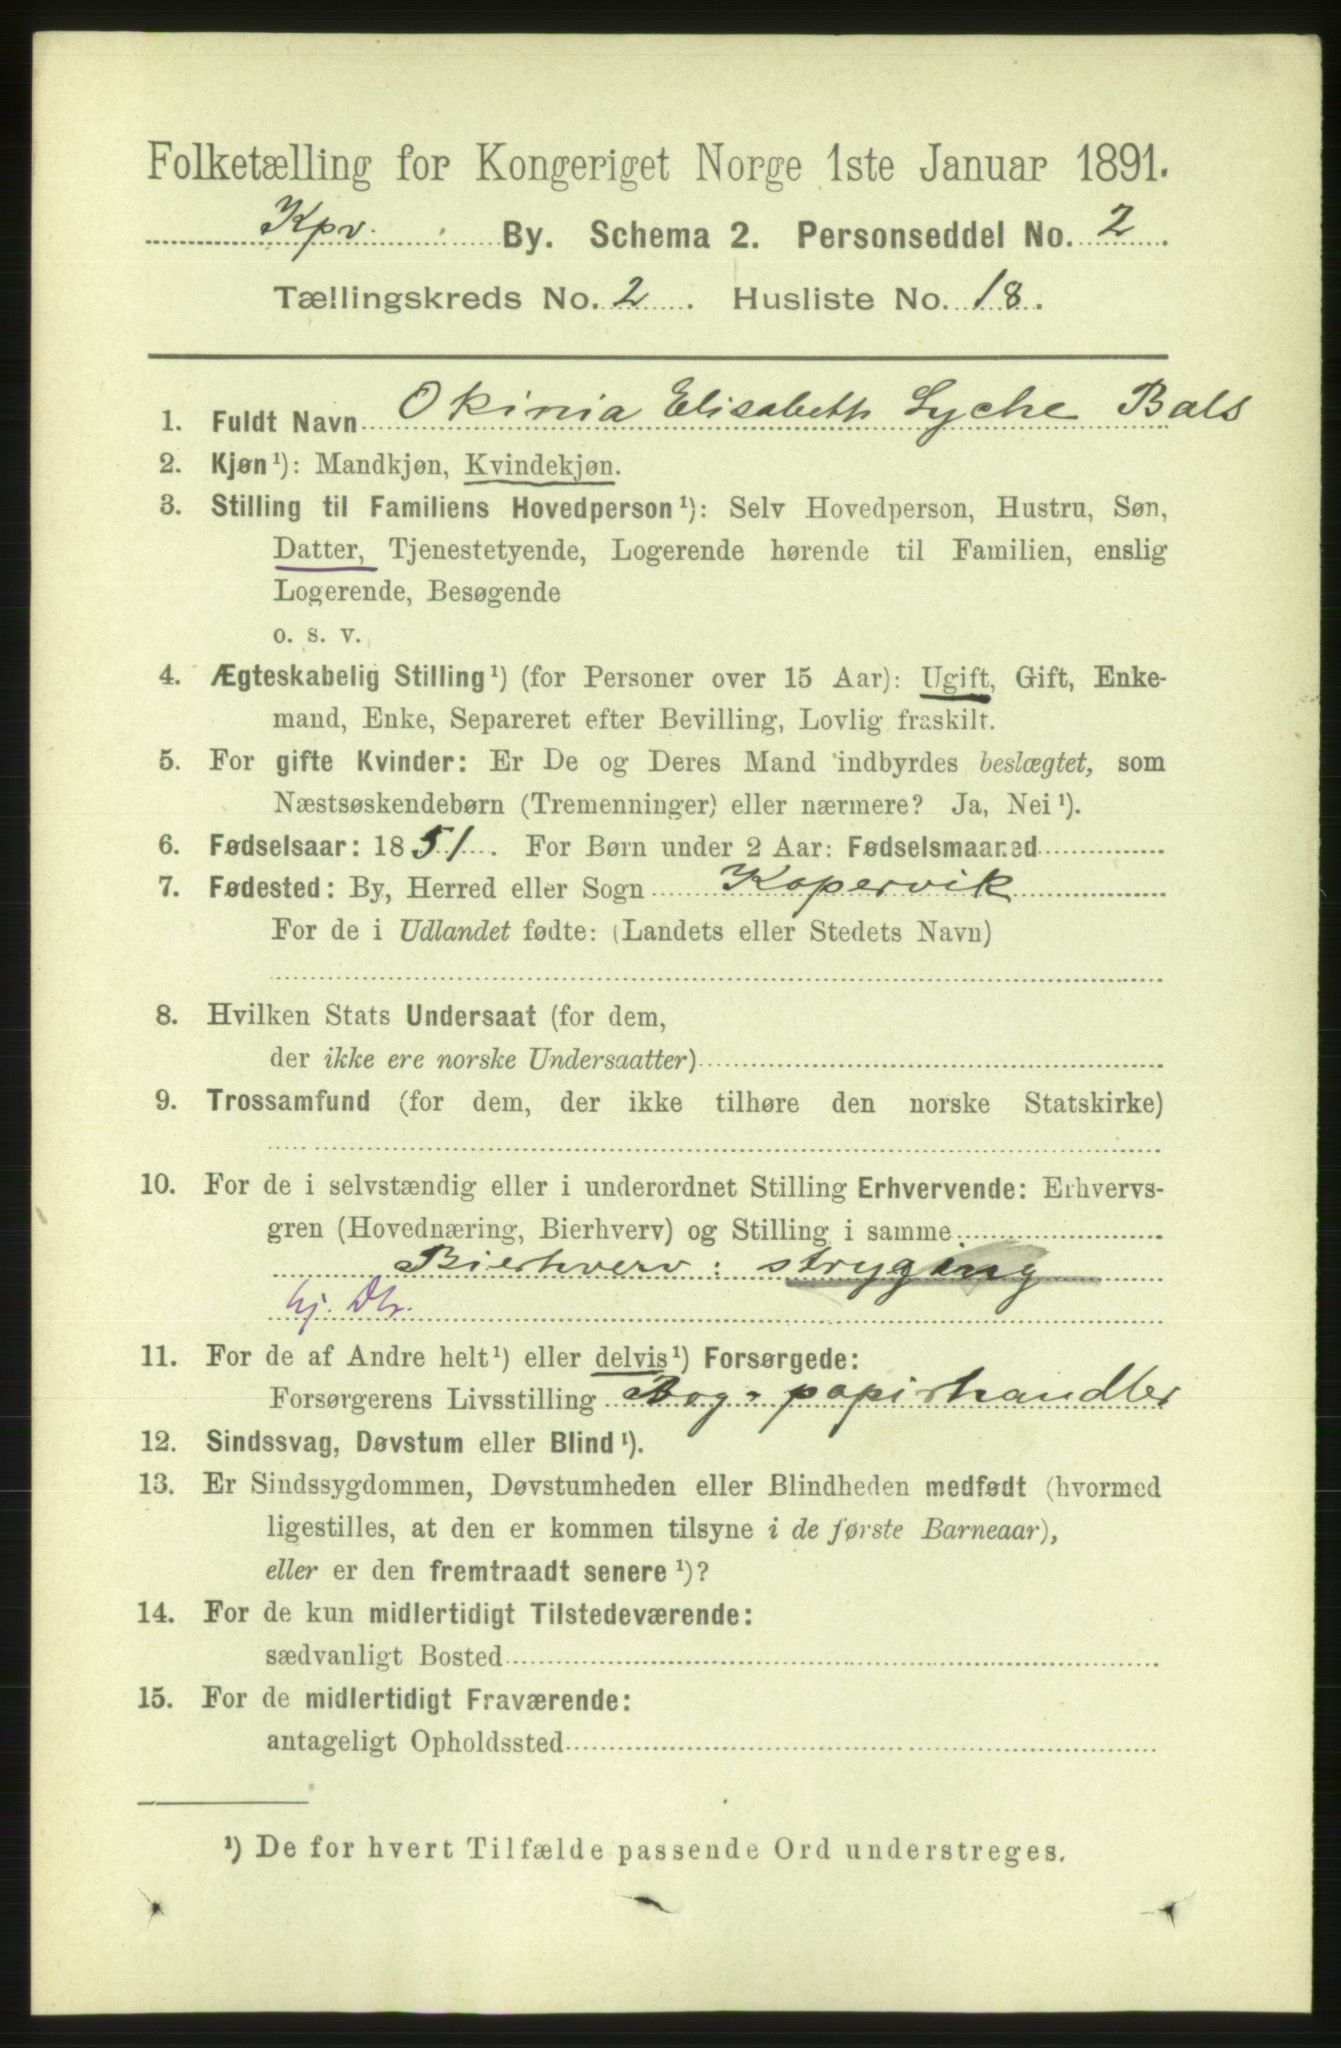 Folketælling for Kongeriget Norge 1ste Januar 1891.
Kpv. By. Schema 2. Personseddel No. 2.
Tællingskreds No. 2. Husliste No. 18.
1. Fuldt Navn Okinia Elisabeth Lyche Bals
2. Kjøn¹): Mandkjøn, Kvindekjøn.
3. Stilling til Familiens Hovedperson¹): Selv Hovedperson, Hustru, Søn,
Datter, Tjenestetyende, Logerende hørende til Familien, enslig
Logerende, Besøgende
o. s. v.
4. Ægteskabelig Stilling¹) (for Personer over 15 Aar): Ugift, Gift, Enke-
mand, Enke, Separeret efter Bevilling, Lovlig fraskilt.
5. For gifte Kvinder: Er De og Deres Mand indbyrdes beslægtet, som
Næstsøskendebørn (Tremenninger) eller nærmere? Ja, Nei¹).
6. Fødselsaar: 1851. For Børn under 2 Aar: Fødselsmaaned
7. Fødested: By, Herred eller Sogn Kopervik
For de i Udlandet fødte: (Landets eller Stedets Navn)
8. Hvilken Stats Undersaat (for dem,
der ikke ere norske Undersaatter)
9. Trossamfund (for dem, der ikke tilhøre den norske Statskirke)
10. For de i selvstændig eller i underordnet Stilling Erhvervende: Erhvervs-
gren (Hovednæring, Bierhverv) og Stilling i samme
Bierhverv: strygeing
hj. Dtr.
11. For de af Andre helt¹) eller delvis¹) Forsørgede:
Forsørgerens Livsstilling Bog- papirhandler
12. Sindssvag, Døvstum eller Blind¹).
13. Er Sindssygdommen, Døvstumheden eller Blindheden medfødt (hvormed
ligestilles, at den er kommen tilsyne i de første Barneaar),
eller er den fremtraadt senere¹)?
14. For de kun midlertidigt Tilstedeværende:
sædvanligt Bosted
15. For de midlertidigt Fraværende:
antageligt Opholdssted
¹) De for hvert Tilfælde passende Ord understreges.